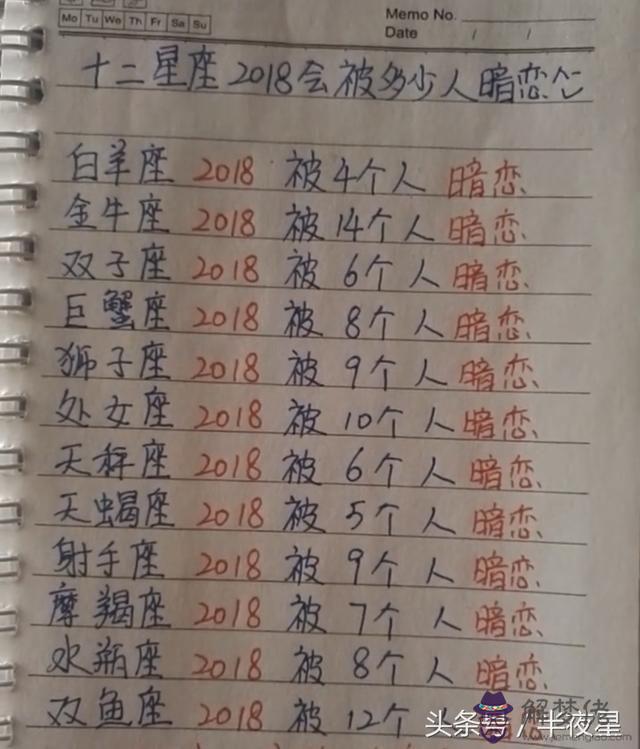 Memo No.
Mo Tu We Th Fr Sa Su
Date / /
十二星座2018会被多少人暗恋
白羊座 2018 被4个人 暗恋
金牛座 2018 被14个人 暗恋
双子座 2018 被 6个人 暗恋
巨蟹座 2018 被 8个人 暗恋
狮子座 2018 被 9个人 暗恋
处女座 2018 被 10个人 暗恋
天秤座 2018 被 6个人 暗恋
天蝎座 2018 被 5个人 暗恋
射手座 2018 被 9个人 暗恋
摩羯座 2018 被 7个人 暗恋
水瓶座 2018 被 8个人 暗恋
双鱼座 2018 被 12个
解梦佬
头条号 / 半夜星